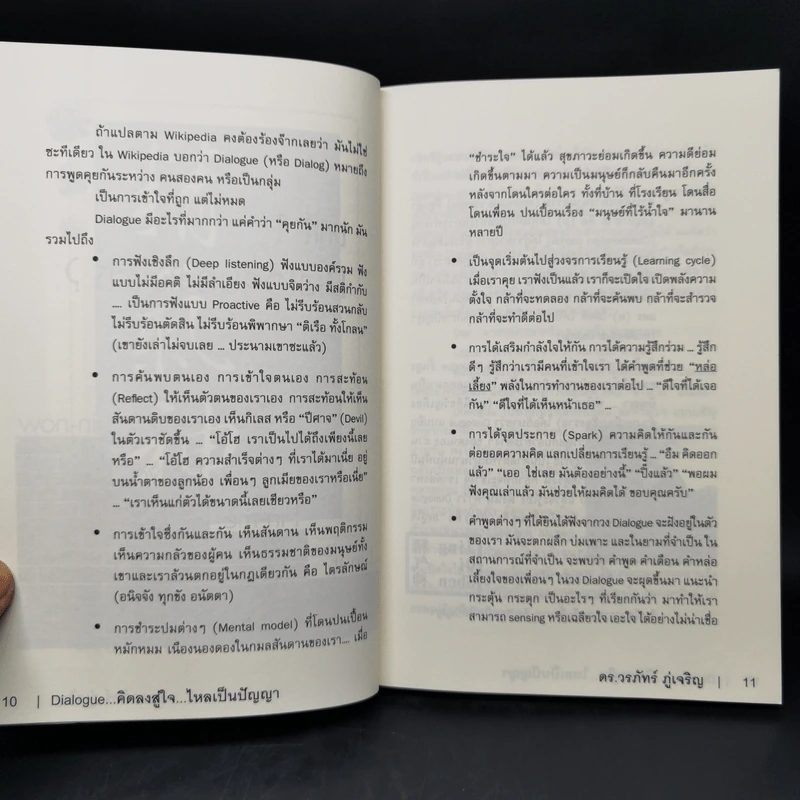 ถ้าแปลตาม Wikipedia คงต้องร้องจ๊ากเลยว่า มันไม่ใช่
ซะทีเดียว ใน Wikipedia บอกว่า Dialogue (หรือ Dialog) หมายถึง
การพูดคุยกันระหว่าง คนสองคน หรือเป็นกลุ่ม
เป็นการเข้าใจที่ถูก แต่ไม่หมด
Dialogue มีอะไรที่มากกว่า แค่คำว่า “คุยกัน” มากนัก มัน
รวมไปถึง
• การฟังเชิงลึก (Deep listening) ฟังแบบองค์รวม ฟัง
แบบไม่มีอคติ ไม่มีลำเอียง ฟังแบบจิตว่าง มีสติกำกับ
.... เป็นการฟังแบบ Proactive คือ ไม่รีบร้อนสวนกลับ
ไม่รีบร้อนตัดสิน ไม่รีบร้อนพิพากษา “ติเรือ ทั้งโกลน”
(เขายังเล่าไม่จบเลย ... ประนามเขาซะแล้ว)
• การค้นพบตนเอง การเข้าใจตนเอง การสะท้อน
(Reflect) ให้เห็นตัวตนของเราเอง การสะท้อนให้เห็น
สันดานดิบของเราเอง เห็นกิเลส หรือ “ปีศาจ” (Devil)
ในตัวเราชัดขึ้น ... “โอ้โฮ เราเป็นไปได้ถึงเพียงนี้เลย
หรือ” ... “โอ้โฮ ความสำเร็จต่างๆ ที่เราได้มาเนี่ย อยู่
บนน้ำตาของลูกน้อง เพื่อนๆ ลูกเมียของเราหรือเนี่ย”
... “เราเห็นแก่ตัวได้ขนาดนี้เลยเชียวหรือ”
• การเข้าใจซึ่งกันและกัน เห็นสันดาน เห็นพฤติกรรม
เห็นความกลัวของผู้คน เห็นธรรมชาติของมนุษย์ทั้ง
เขาและเราล้วนตกอยู่ในกฎเดียวกัน คือ ไตรลักษณ์
(อนิจจัง ทุกขัง อนัตตา)
• การชำระปมต่างๆ (Mental model) ที่โดนปนเปื้อน
หมักหมม เนืองนองดองในกมลสันดานของเรา.... เมื่อ
10 | Dialogue...คิดลงสู่ใจ...ไหลเป็นปัญญา
“ชำระใจ” ได้แล้ว สุขภาวะย่อมเกิดขึ้น ความดีย่อม
เกิดขึ้นตามมา ความเป็นมนุษย์ก็กลับคืนมาอีกครั้ง
หลังจากโดนใครต่อใคร ทั้งที่บ้าน ที่โรงเรียน โดนสื่อ
โดนเพื่อน ปนเปื้อนเรื่อง “มนุษย์ที่ไร้น้ำใจ” มานาน
หลายปี
• เป็นจุดเริ่มต้นไปสู่วงจรการเรียนรู้ (Learning cycle)
เมื่อเราคุย เราฟังเป็นแล้ว เราก็จะเปิดใจ เปิดพลังความ
ตั้งใจ กล้าที่จะทดลอง กล้าที่จะค้นพบ กล้าที่จะสำรวจ
กล้าที่จะทำดีต่อไป
• การได้เสริมกำลังใจให้กัน การได้ความรู้สึกร่วม ... รู้สึก
ดีๆ รู้สึกว่าเรามีคนที่เข้าใจเรา ได้คำพูดที่ช่วย “หล่อ
เลี้ยง” พลังในการทำงานของเราต่อไป ... “ดีใจที่ได้เจอ
กัน” “ดีใจที่ได้เห็นหน้าเธอ” ...
• การได้จุดประกาย (Spark) ความคิดให้กันและกัน
ต่อยอดความคิด แลกเปลี่ยนการเรียนรู้ ... “อืม คิดออก
แล้ว” “เออ ใช่เลย มันต้องอย่างนี้” “ปิ๊งแล้ว” “พอผม
ฟังคุณเล่าแล้ว มันช่วยให้ผมคิดได้ ขอบคุณครับ”
• คำพูดต่างๆ ที่ได้ยินได้ฟังจากวง Dialogue จะฝังอยู่ในตัว
ของเรา มันจะตกผลึก บ่มเพาะ และในยามที่จำเป็น ใน
สถานการณ์ที่จำเป็น จะพบว่า คำพูด คำเตือน คำหล่อ
เลี้ยงใจของเพื่อนๆ ในวง Dialogue จะผุดขึ้นมา แนะนำ
กระตุ้น กระตุก เป็นอะไรๆ ที่เรียกกันว่า มาทำให้เรา
สามารถ sensing หรือเฉลียวใจ เอะใจ ได้อย่างไม่น่าเชื่อ
ดร.วรภัทร์ ภู่เจริญ | 11